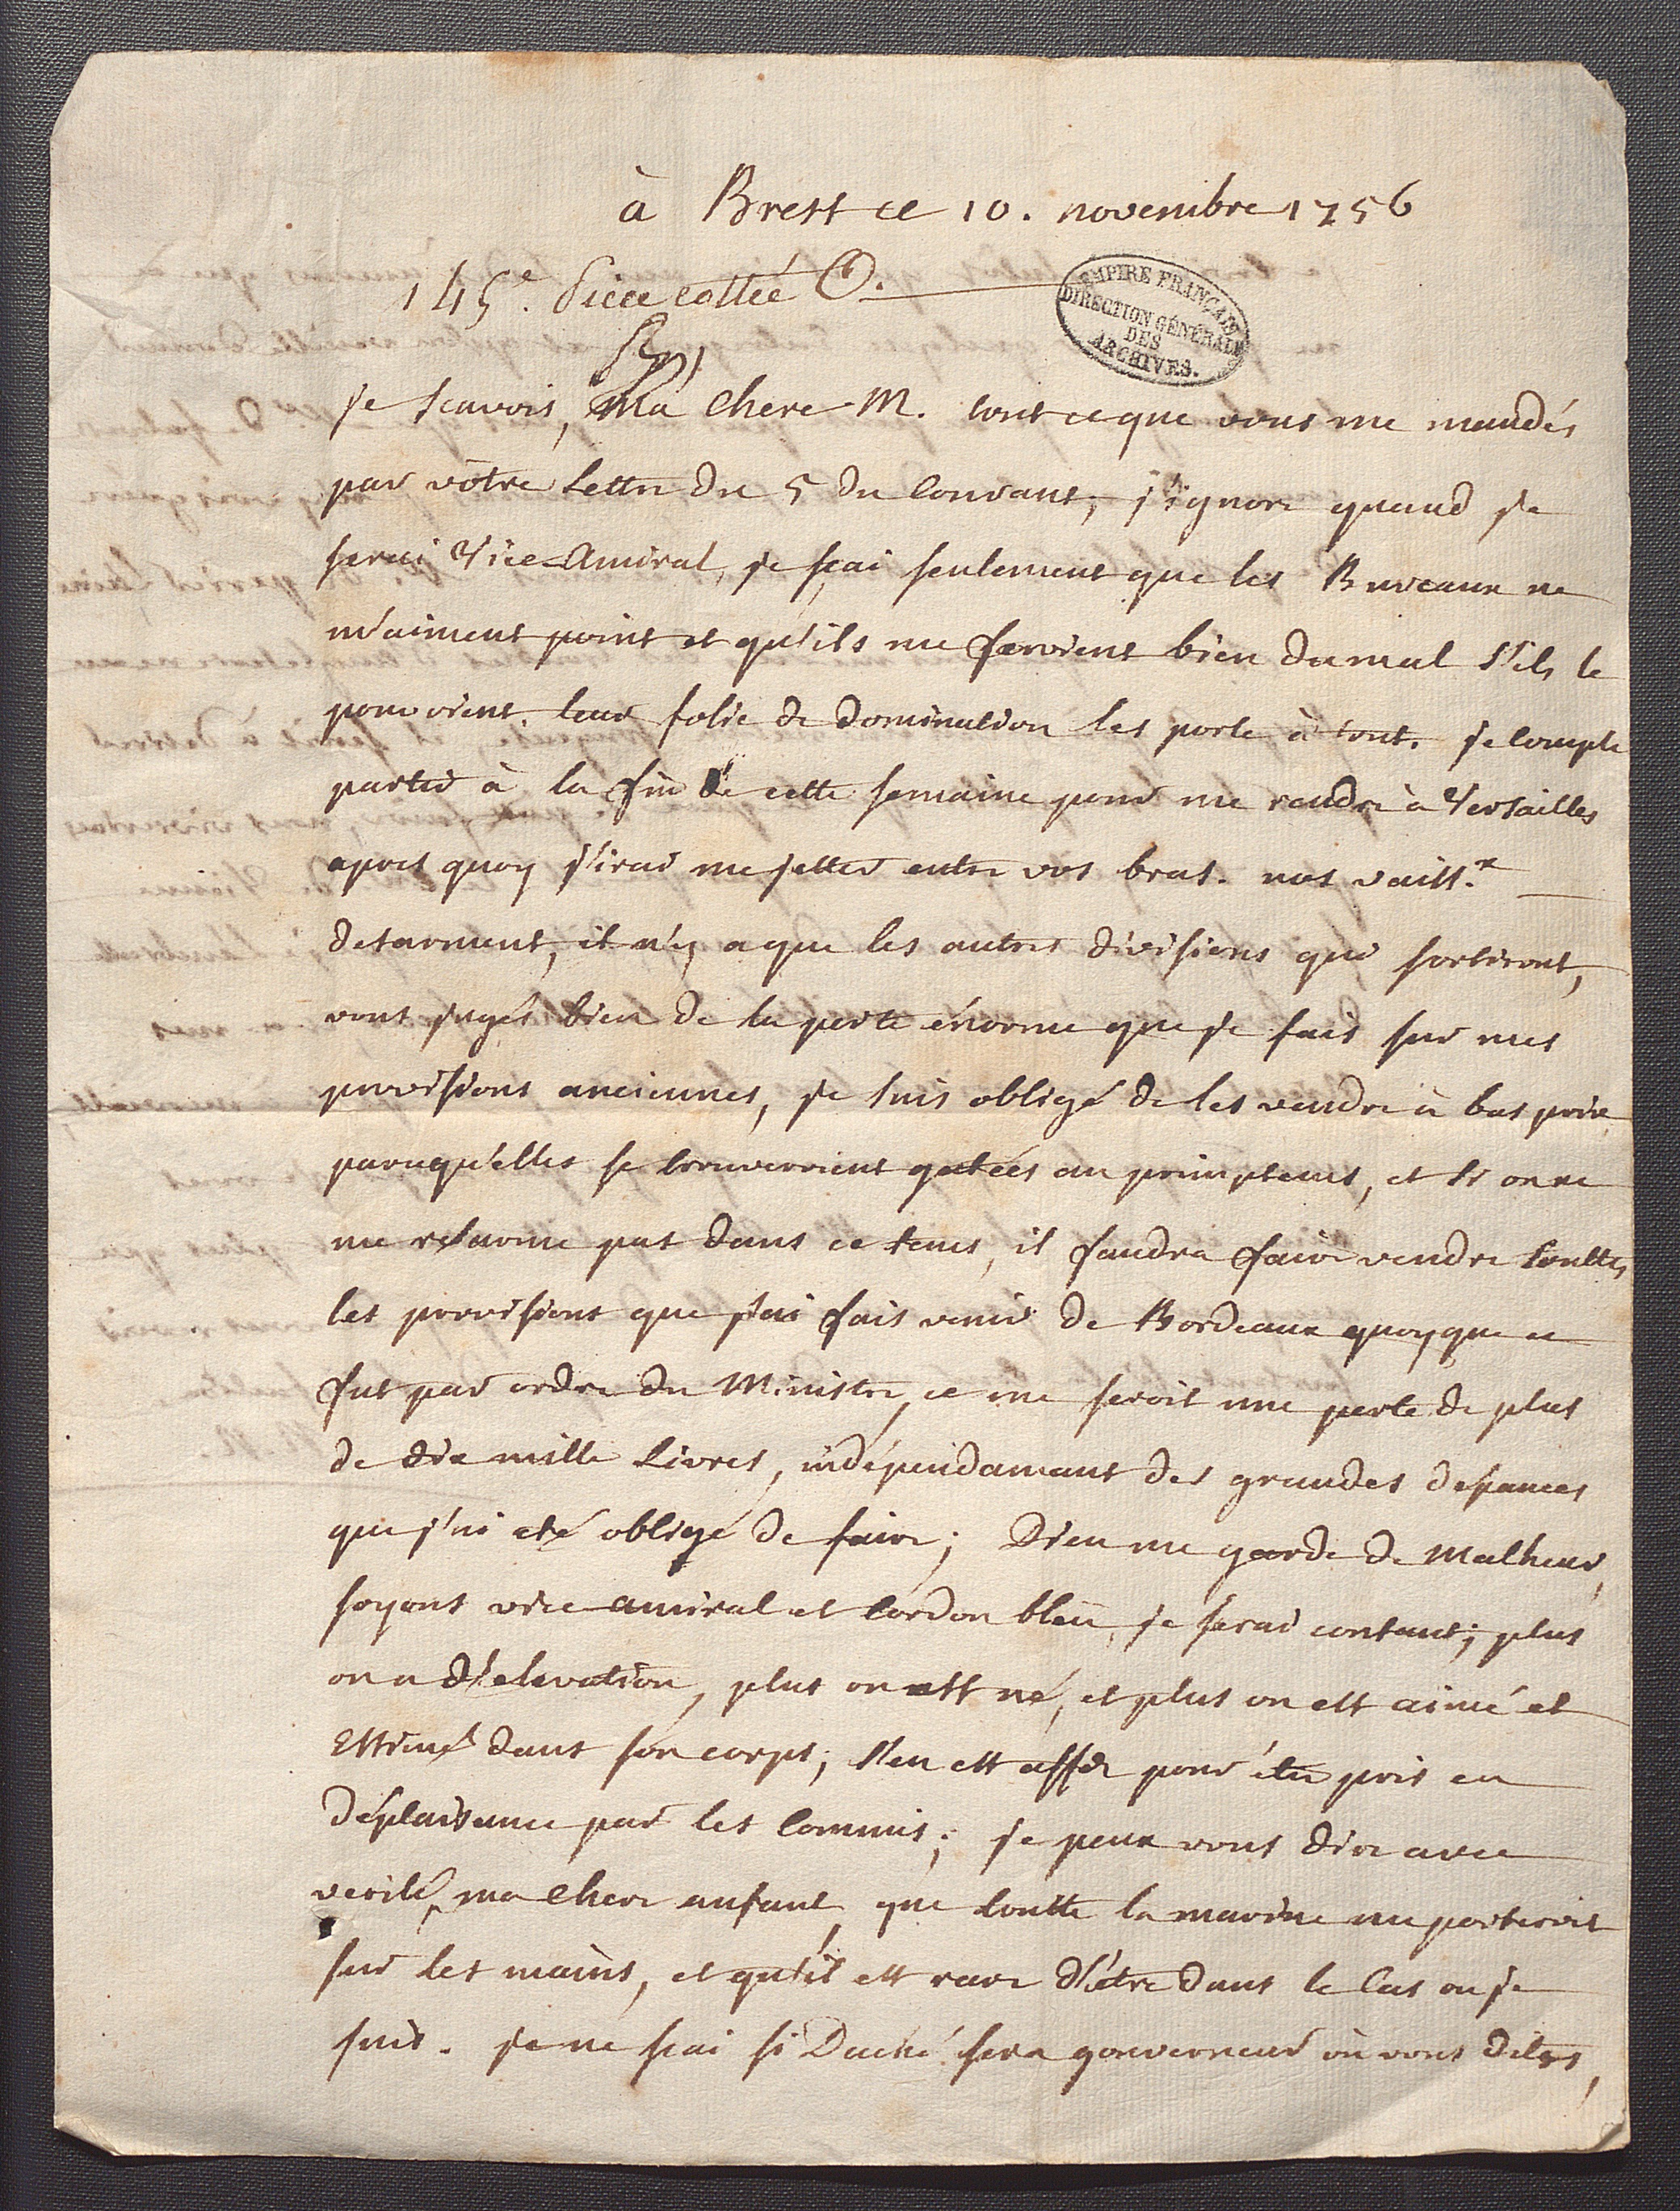 à Brest ce 10. novembre 1756
145e. Piece cottée O.
EMPIRE FRANÇAIS
DIRECTION GÉNÉRALE
DES
ARCHIVES.
je scavois, Ma chere M. tout ce que vous me mandés
par vôtre lettre du 5 du Courant; j'ignore quand je
serai Vice=Amiral, je sçai seulement que les Bureaux ne
m'aiment point et qu'ils me feroient bien du mal s'ils le
pouvoient. leur folie de domination les porte à tout. je compte
partir à la fin de cette semaine pour me rendre à Versailles
apres quoy j'irai me jetter entre vos bras. nos vaiss.x
desarment, il n'y a que les autres divisions qui sortiront,
vous jugés bien de la perte énorme que je fais sur mes
provisions anciennes, je suis obligé de les vendre à bas prix
parcequ'elles se trouveroient gatées au primptems, et si on ne
me rearme pas dans ce tems, il faudra faire vendre touttes
les provisions que j'ai fais venir de Bordeaux quoyque ce
fut par ordre du Ministre, ce me seroit une perte de plus
de dix mille Livres, indépendamant des grandes depances
que j'ai eté obligé de faire; Dieu me garde de Malheur,
soyons vice amiral et Cordon bleu, je serai contant; plus
on a d'elevation, plus on est né, et plus on est aimé et
Estimé dans son corps; s'en est assés pour être pris en
déplaisance par les Commis; je peux vous dire avec
verité, ma chere enfant, que toutte la marine me porteroit
sur les mains, et qu'il est rare d'être dans le Cas ou je
suis. je ne sçai si Daché sera gouverneur où vous dites,